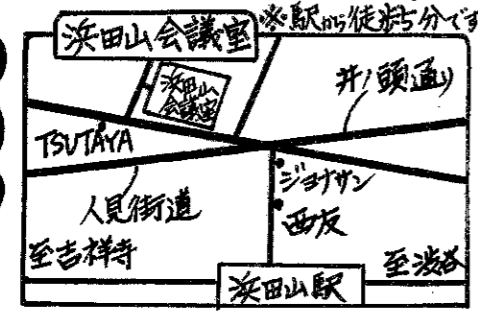 浜田山会議室
※駅から徒歩5分です
浜田山
会議室
井ノ頭通り
TSUTAYA
ジョナサン
人見街道
西友
至吉祥寺
至渋谷
浜田山駅